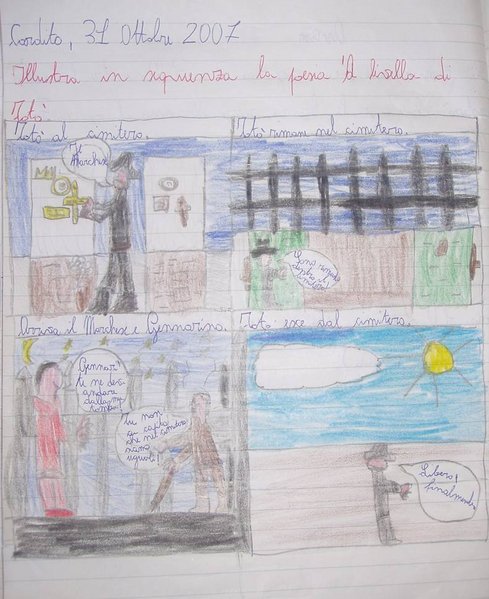 Corduto, 31 Ottobre 2007
Illustra in sequenza la poesia 'A livella di
Totò.
Totò al cimitero.
Totò rimane nel cimitero.
Il Marchese
Sono rimasto
Arriva il Marchese e Gennarino.
Totò esce dal cimitero.
Gennar'
te ne devi
andare
dalla mia
tomba!
Tu non
hai capito
che nel cimitero
siamo
uguali!
Libero!
finalmente